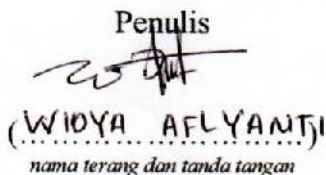 Penulis
(WIDYA AFLYANTI)
nama terang dan tanda tangan